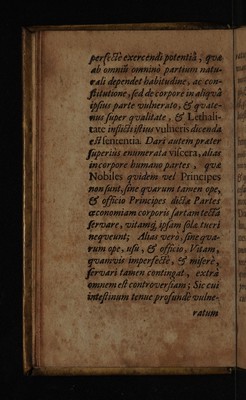 perfectè exercendi potentiâ, quæ
ab omniũ omninò partium natu-
rali dependet habitudine, ac con-
stitutione, sed de corpore in aliquâ
ipsius parte vulnerato, & quate-
nus super qualitate, & Lethali-
tate inflicti istius vulneris dicenda
est sententia. Dari autem præter
superiùs enumerata viscera, alias
in corpore humano partes, quæ
Nobiles quidem vel Principes
non sunt, sine quarum tamen ope,
& officio Principes dictæ Partes
œconomiam corporis sartam tectã
servare, vitamq́ ipsam solæ tueri
nequeunt; Alias verò, sine qua-
rum ope, usu, & officio, Vitam,
quamvis imperfectè, & miserè,
servari tamen contingat, extra
omnem est controversiam; Sic cui
intestinum tenue profundè vulne-
ratum